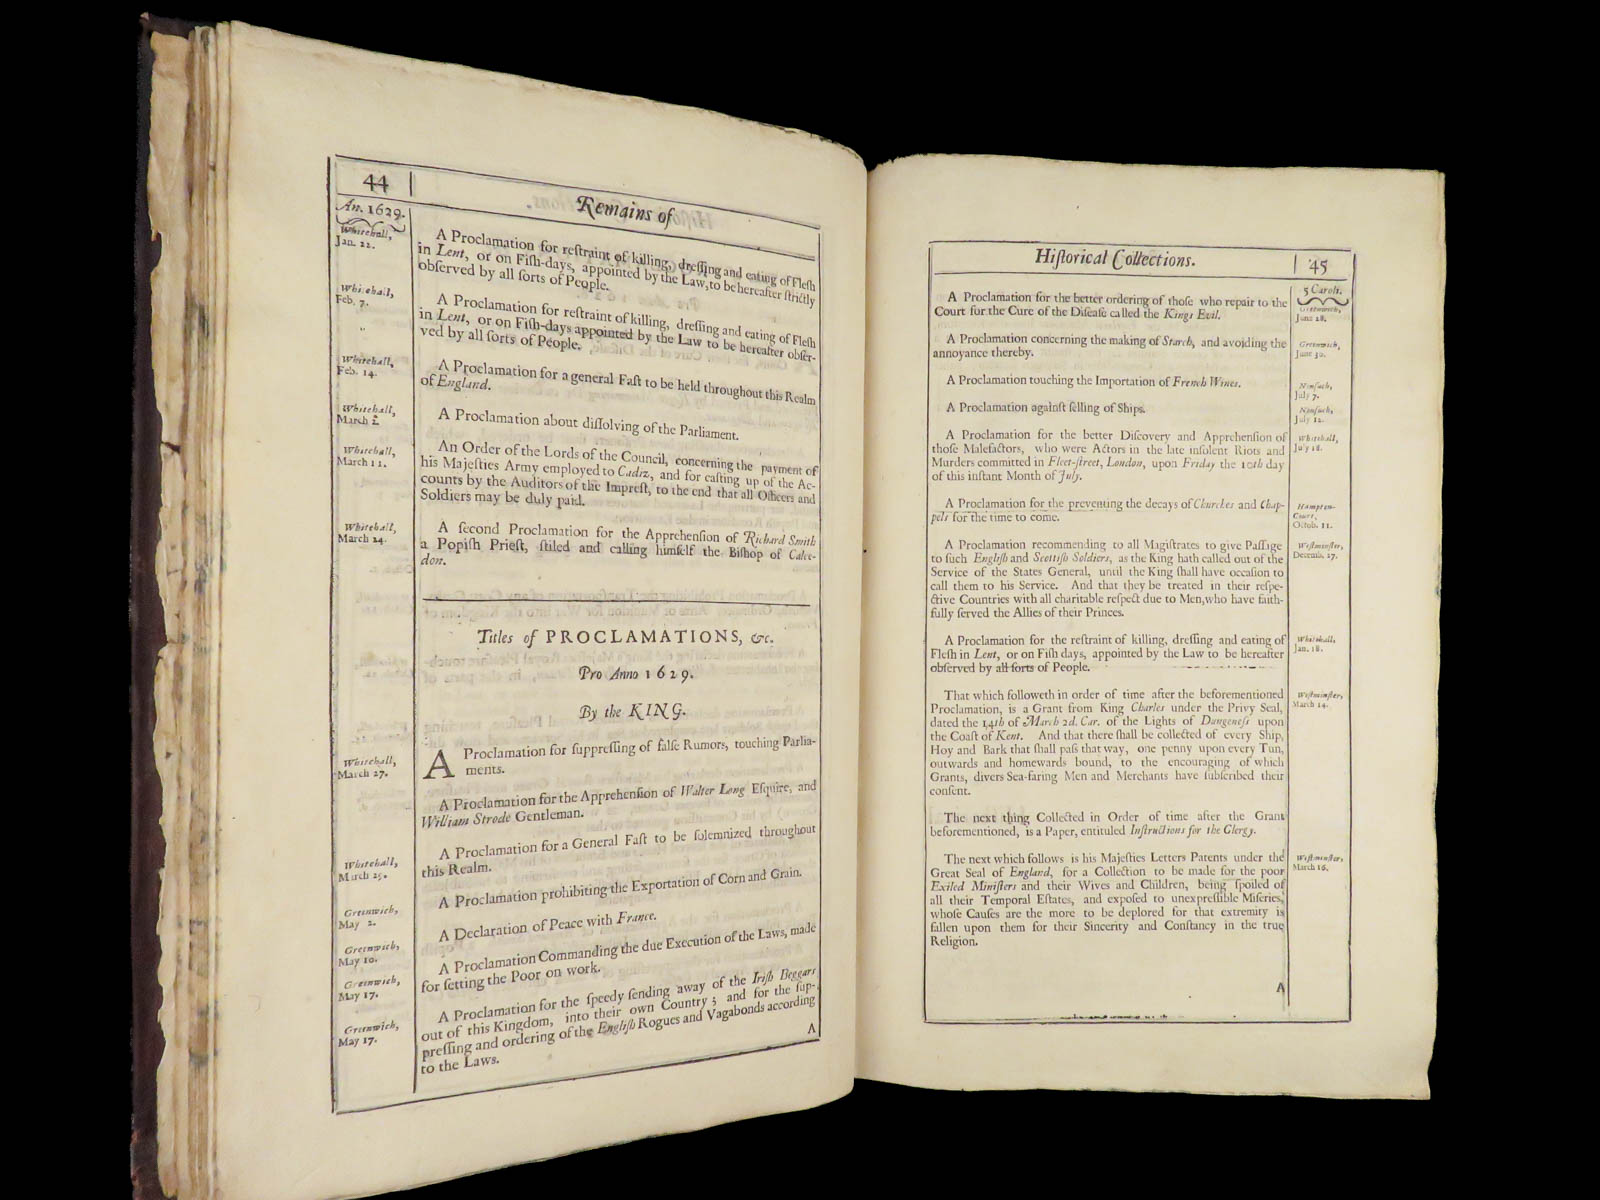 44
Remains of
An. 1629.
Whitehall,
Jan. 22.
A Proclamation for reſtraint of killing, dreſſing and eating of Fleſh
in Lent, or on Fiſh-days, appointed by the Law, to be hereafter ſtrictly
obſerved by all ſorts of People.
Whitehall,
Feb. 7.
A Proclamation for reſtraint of killing, dreſſing and eating of Fleſh
in Lent, or on Fiſh-days appointed by the Law to be hereafter obſer-
ved by all ſorts of People.
Whitehall,
Feb. 14.
A Proclamation for a general Faſt to be held throughout this Realm
of England.
Whitehall,
March 2.
A Proclamation about diſſolving of the Parliament.
Whitehall,
March 11.
An Order of the Lords of the Council, concerning the payment of
his Majeſties Army employed to Cadiz, and for caſting up of the Ac-
counts by the Auditors of the Impreſt, to the end that all Officers and
Soldiers may be duly paid.
Whitehall,
March 24.
A ſecond Proclamation for the Apprehenſion of Richard Smith
a Popiſh Prieſt, ſtiled and calling himſelf the Biſhop of Calce-
don.
Titles of PROCLAMATIONS, &c.
Pro Anno 1629.
By the KING.
Whitehall,
March 27.
A Proclamation for ſuppreſſing of falſe Rumors, touching Parlia-
ments.
A Proclamation for the Apprehenſion of Walter Long Eſquire, and
William Strode Gentleman.
Whitehall,
March 29.
A Proclamation for a General Faſt to be ſolemnized throughout
this Realm.
Greenwich,
May 2.
A Proclamation prohibiting the Exportation of Corn and Grain.
Greenwich,
May 10.
A Declaration of Peace with France.
Greenwich,
May 17.
A Proclamation Commanding the due Execution of the Laws, made
for ſetting the Poor on work.
Greenwich,
May 17.
A Proclamation for the ſpeedy ſending away of the Iriſh Beggars
out of this Kingdom, into their own Country; and for the ſup-
preſſing and ordering of the Engliſh Rogues and Vagabonds according
to the Laws.
A
Hiſtorical Collections.
45
5 Caroli.
Greenwich,
June 18.
A Proclamation for the better ordering of thoſe who repair to the
Court for the Cure of the Diſeaſe called the Kings Evil.
Greenwich,
June 30.
A Proclamation concerning the making of Starch, and avoiding the
annoyance thereby.
Nonſuch,
July 7.
A Proclamation touching the Importation of French Wines.
Nonſuch,
July 12.
A Proclamation againſt ſelling of Ships.
Whitehall,
July 18.
A Proclamation for the better Diſcovery and Apprehenſion of
thoſe Malefactors, who were Actors in the late inſolent Riots and
Murders committed in Fleet-ſtreet, London, upon Friday the 10th day
of this inſtant Month of July.
Hampton-
Court,
Octob. 11.
A Proclamation for the preventing the decays of Churches and Chap-
pels for the time to come.
Weſtminſter,
Decemb. 27.
A Proclamation recommending to all Magiſtrates to give Paſſage
to ſuch Engliſh and Scottiſh Soldiers, as the King hath called out of the
Service of the States General, until the King ſhall have occaſion to
call them to his Service. And that they be treated in their reſpe-
ctive Countries with all charitable reſpect due to Men, who have faith-
fully ſerved the Allies of their Princes.
Whitehall,
Jan. 18.
A Proclamation for the reſtraint of killing, dreſſing and eating of
Fleſh in Lent, or on Fiſh days, appointed by the Law to be hereafter
obſerved by all ſorts of People.
Weſtminſter,
March 14.
That which followeth in order of time after the beforementioned
Proclamation, is a Grant from King Charles under the Privy Seal,
dated the 14th of March 2d. Car. of the Lights of Dungeneſs upon
the Coaſt of Kent. And that there ſhall be collected of every Ship,
Hoy and Bark that ſhall paſs that way, one penny upon every Tun,
outwards and homewards bound, to the encouraging of which
Grants, divers Sea-faring Men and Merchants have ſubſcribed their
conſent.
The next thing Collected in Order of time after the Grant
beforementioned, is a Paper, entituled Inſtructions for the Clergy.
Weſtminſter,
March 16.
The next which follows is his Majeſties Letters Patents under the
Great Seal of England, for a Collection to be made for the poor
Exiled Miniſters and their Wives and Children, being ſpoiled of
all their Temporal Eſtates, and expoſed to unexpreſſible Miſeries,
whoſe Cauſes are the more to be deplored for that extremity is
fallen upon them for their Sincerity and Conſtancy in the true
Religion.
A